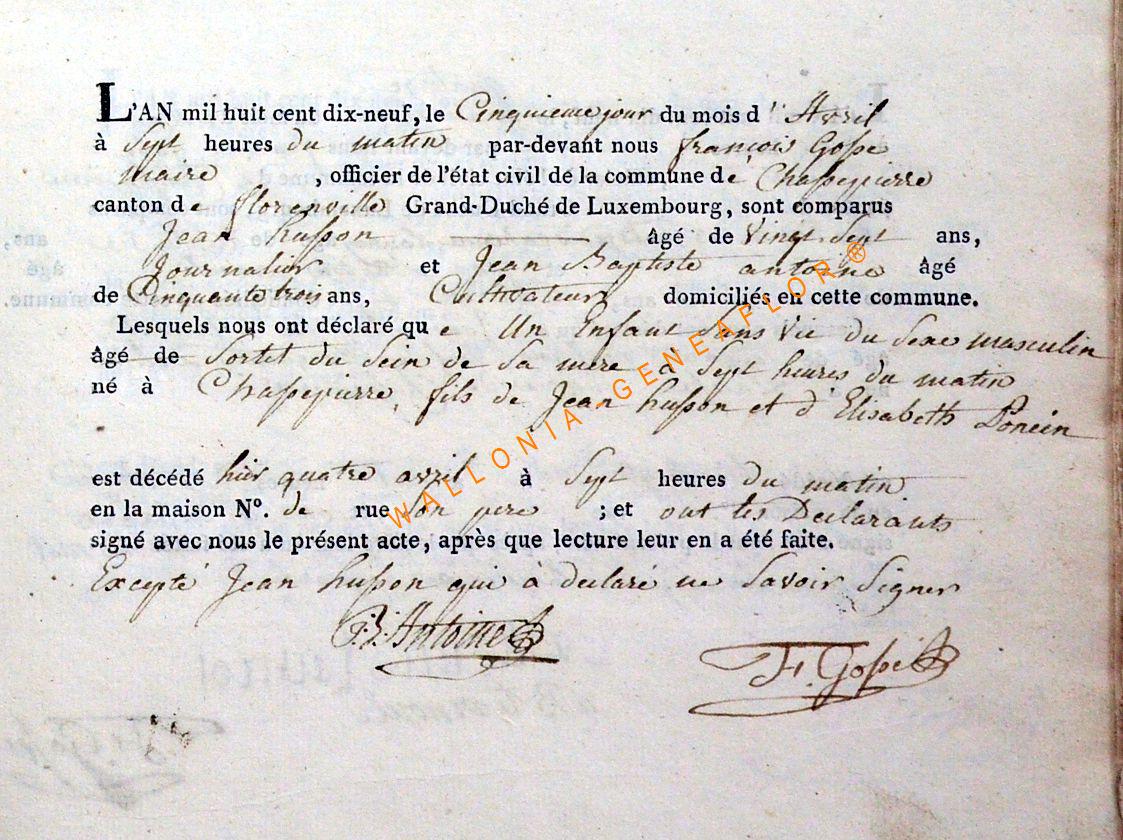 L'AN mil huit cent dix-neuf, le Cinquieme jour du mois d'Avril
à Sept heures du matin par-devant nous françois Gosse
maire , officier de l'état civil de la commune de Chassepierre
canton de florenville Grand-Duché de Luxembourg, sont comparus
Jean husson âgé de Vingt Sept ans,
Journalier et Jean Baptiste antoine âgé
de Cinquante trois ans, Cultivateur domiciliés en cette commune.
Lesquels nous ont déclaré que Un Enfant Sans Vie du Sexe masculin
âgé de Sortet du Sein de Sa mere à Sept heures du matin
né à Chassepierre, fils de Jean husson et d Elisabeth Poncin
est décédé hier quatre avril à Sept heures Du matin
en la maison N°. de rue Son pere ; et ont les Declarants
signé avec nous le présent acte, après que lecture leur en a été faite.
Excepté Jean husson qui à declaré ne Savoir Signer
J.B. Antoine
F. Gosse
WALLONIA-GENEAFLOR ®